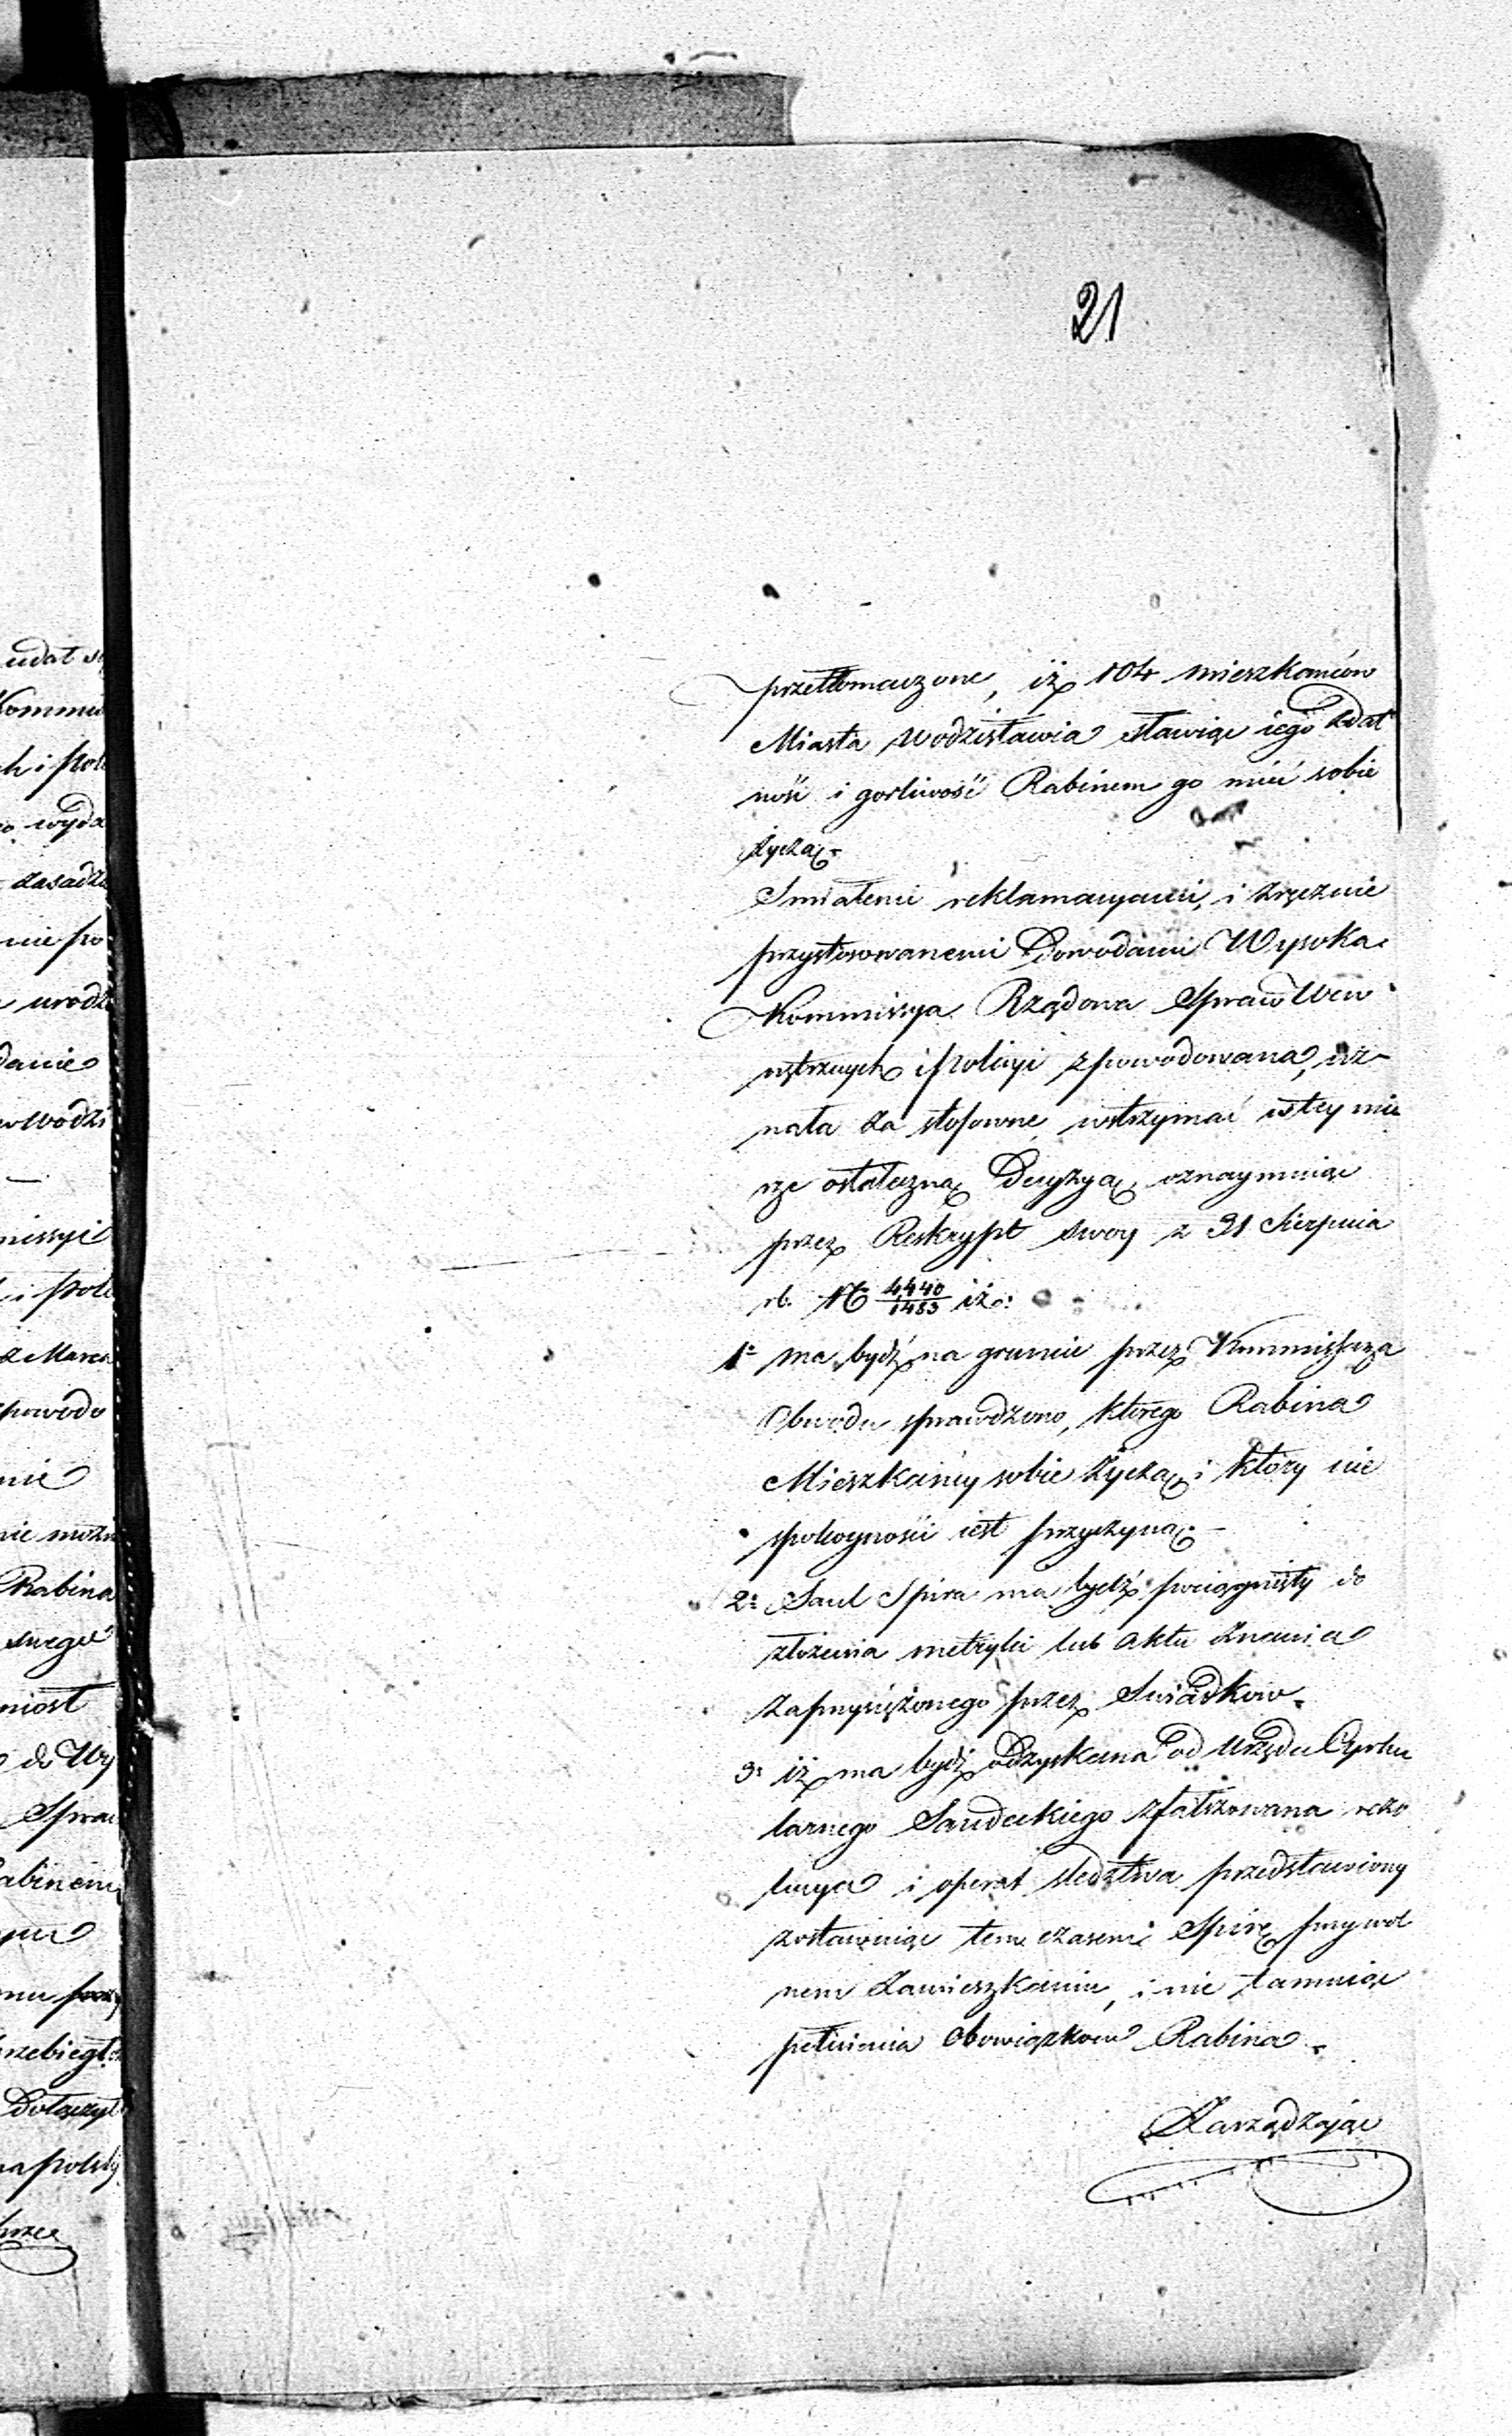 21
przetłomaczone, iż 104 mieszkańców
Miasta Wodzisławia sławiąc iego zdat
ność i gorliwość Rabinem go mieć sobie
życzą.
Śmiałemi reklamacyami, i zręcznie
przystosowanemi Dowodami Wysoka
Kommissya Rządowa Spraw Wew
nętrznych i Policyi spowodowana, uz-
nała za stosowne wstrzymać w tey mie
rze ostateczną Decyzyą, oznaymuiąc
przez Reskrypt swoy z 31 Sierpnia
rb. № 4440/1483 iż:
1° ma bydź na gruncie przez Kommissarza
Obwodu sprawdzono, ktorego Rabina
Mieszkańcy sobie życzą, i który nie
spokoyności iest przyczyną. -
2: Saul Spira ma bydź pociągnięty do
złożenia metryki lub aktu znania
zaprzysiężonego przez Swiadkow.
3: iż ma bydź odzyskana od Urzędu Cyrku
larnego Sandeckiego zfałszowana rezo
lucya i operat sledztwa przedstawiony
zostawuiąc tem czasem Spirę przy wol
nem zamieszkaniu, i nie tamuiąc
pełnienia obowiązkow Rabina.
Zarządzaiąc
udał si
Kommi
ch i Poli
wyda
zasadz
nie po
urodz
danie
Wodzi
missyi
i Poli
z Marca
powodo
nie
nie możn
Rabina
swego
niosł
do Wy
Spraw
abinem
przebiegł
Dołączył
na Polsk
przez